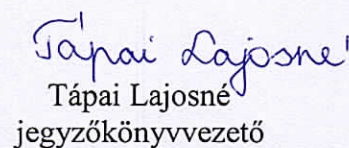 Tápai Lajosné
Tápai Lajosné
jegyzőkönyvvezető